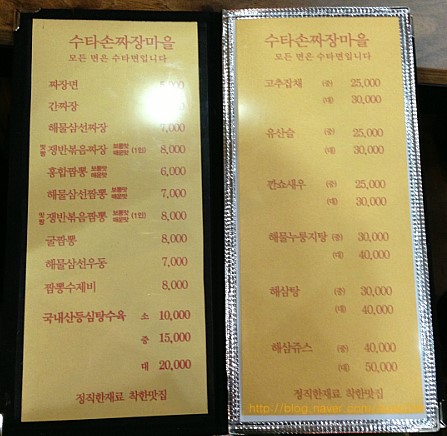 수타손짜장마을
모든 면은 수타면입니다
짜장면
간짜장
해물삼선짜장 7,000
맛짱 쟁반볶음짜장 보통맛 매운맛 (1인) 8,000
홍합짬뽕 보통맛 매운맛 6,000
해물삼선짬뽕 보통맛 매운맛 7,000
쟁반볶음짬뽕 보통맛 매운맛 (1인) 8,000
굴짬뽕 8,000
해물삼선우동 7,000
짬뽕수제비 8,000
국내산등심탕수육 소 10,000
중 15,000
대 20,000
정직한재료 착한맛집
수타손짜장마을
모든 면은 수타면입니다
고추잡채 (중) 25,000
(대) 30,000
유산슬 (중) 25,000
(대) 30,000
깐쇼새우 (중) 25,000
(대) 30,000
해물누룽지탕 (중) 30,000
(대) 40,000
해삼탕 (중) 30,000
(대) 40,000
해삼쥬스 (중) 40,000
(대) 50,000
정직한재료 착한맛집
http://blog.naver.com